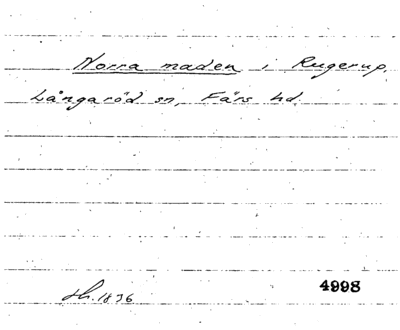 Norra maden i Rugerup,
Långaröd sn, Färs hd.
Sk. 1836
4998